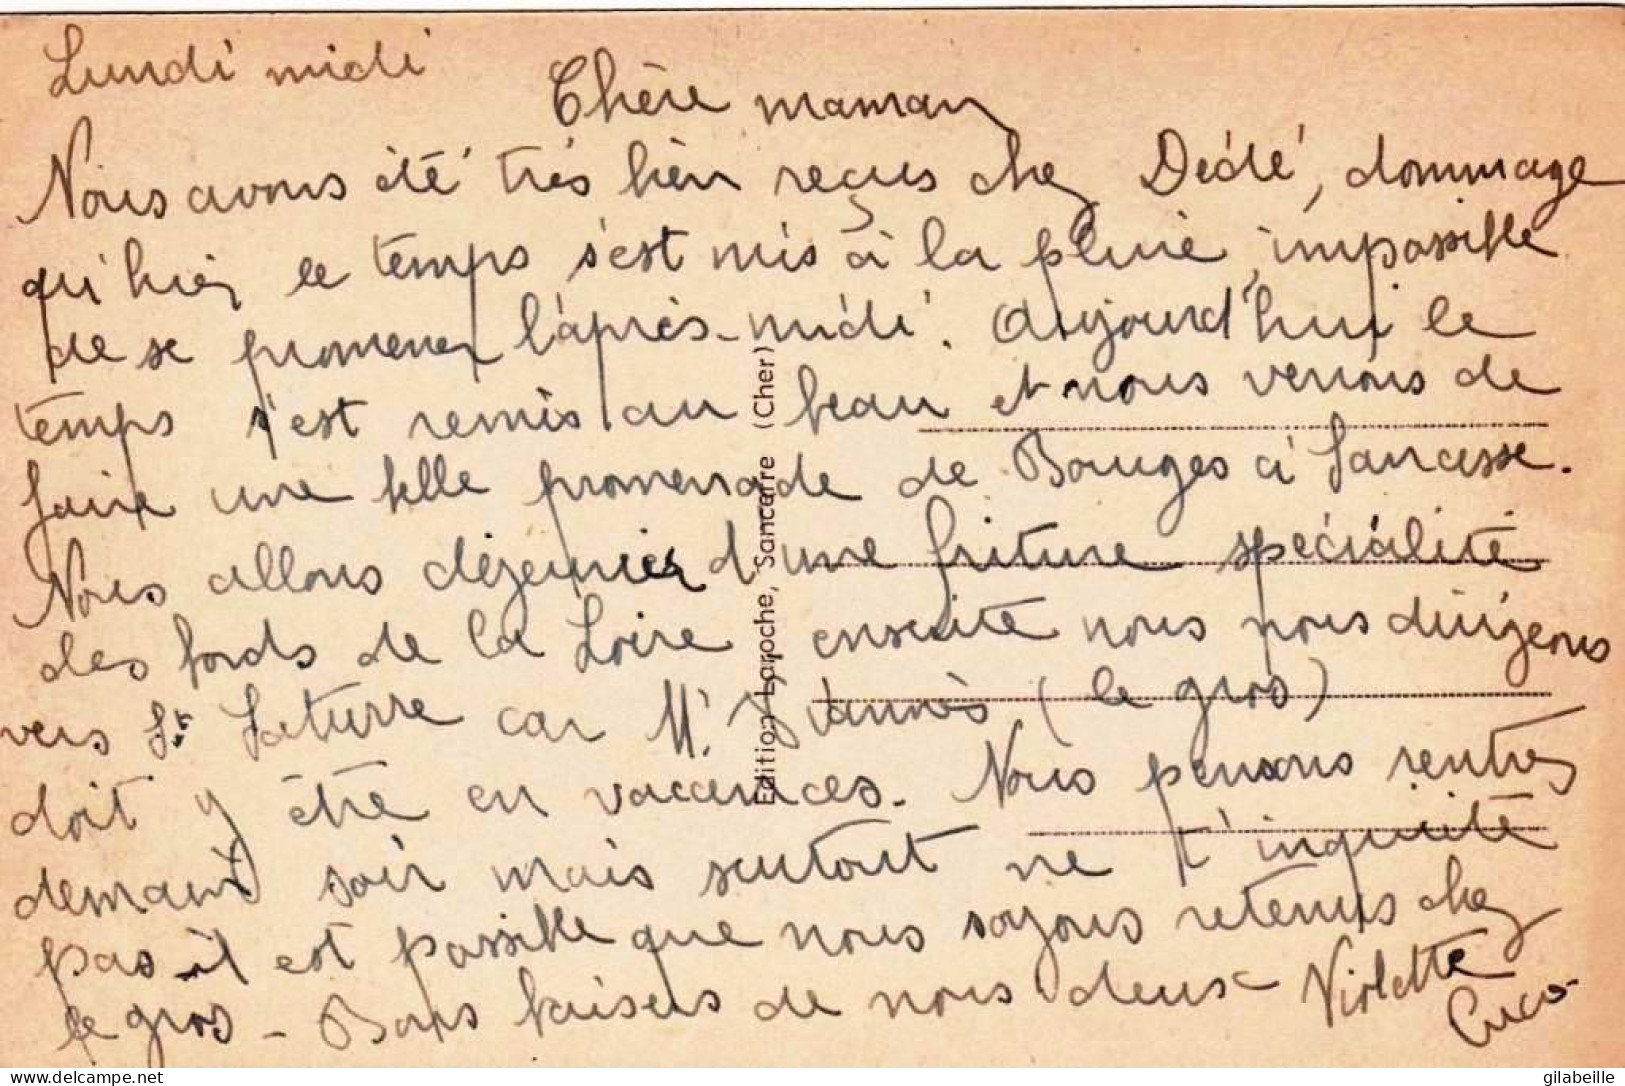 Lundi midi
Chère maman
Nous avons été très bien reçus chez Dédé, dommage
qu'hier le temps s'est mis à la pluie, impossible
de se promener l'après-midi. Aujourd'hui le
temps s'est remis au beau et nous venons de
faire une belle promenade de Bourges à Sancerre.
Nous allons déjeuner d'une friture spécialité
des bords de la Loire ensuite nous nous dirigeons
vers St Saturre car Mr (le gros)
doit y être en vacances. Nous pensons rentrer
demain soir mais surtout ne t'inquiète
pas il est possible que nous soyons retenus chez
le gros - Bons baisers de nous deux Violette
Cuco
Edition Laroche, Sancerre (Cher)
gilabeille